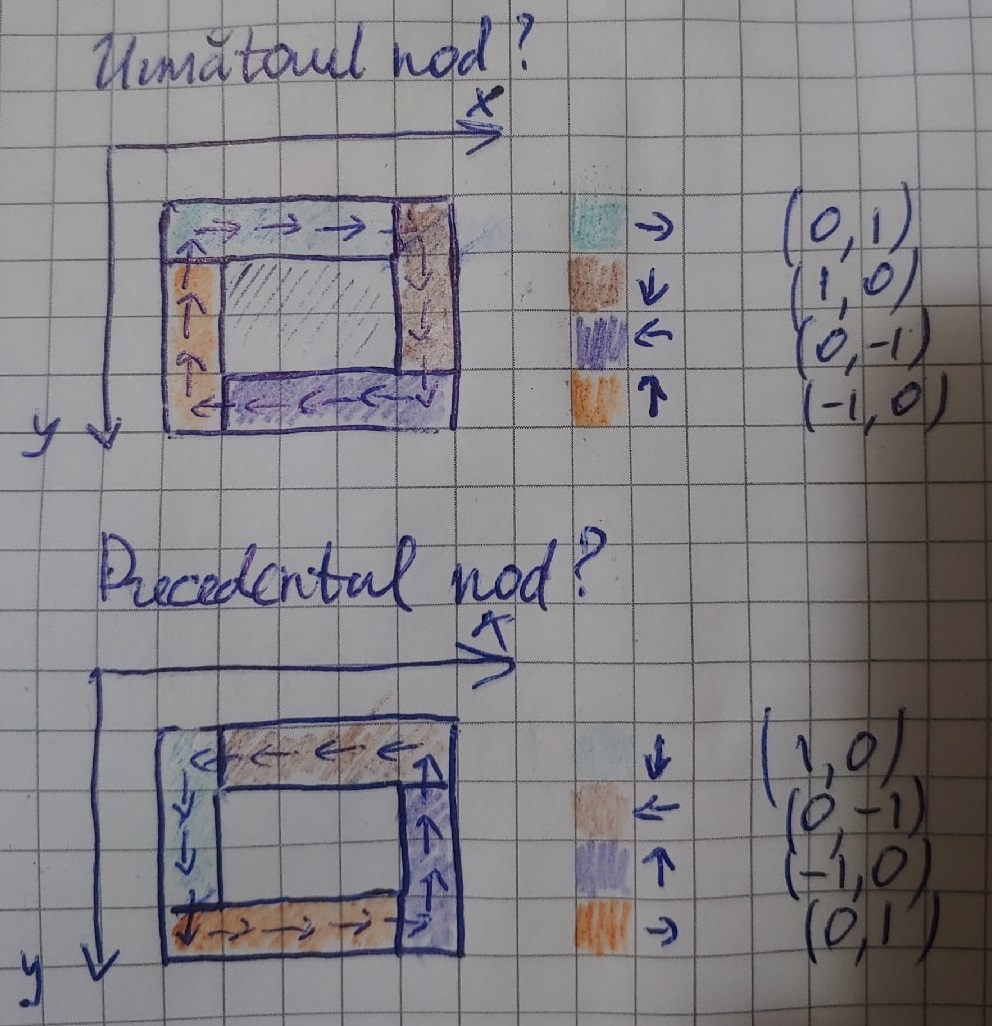 Următorul nod?
x
y
→ (0, 1)
↓ (1, 0)
← (0, -1)
↑ (-1, 0)
Precedentul nod?
x
y
↓ (1, 0)
← (0, -1)
↑ (-1, 0)
→ (0, 1)